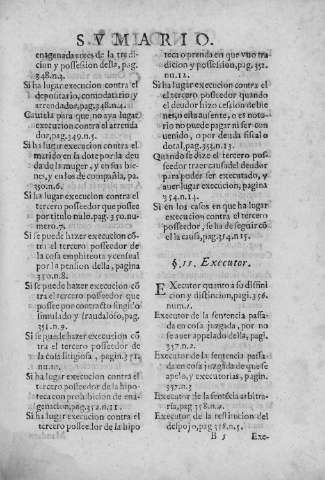 SVMARIO.
enagenada antes de la tradicion y possession della, pag. 348.n.3.
Si ha lugar execucion contra el
depositario, comodatario, y
arrendador, pag. 348.n.4.
Cautela para que no aya lugar
execucion contra el arrendador, pag. 349.n.5.
Si ha lugar execucion contra el
marido en la dote por la deuda de la muger, y en sus bienes, y en los de compañia, pa.
350.n.6.
Si ha lugar execucion contra el
tercero posseedor que possee
por titulo nulo. pag. 350. nu-
mero.7.
Si se puede hazer execucion cō
tra el tercero posseedor de
la cosa emphiteota y censual
por la pension della, pagina
350.n.8.
Si se puede hazer execucion cō
tra el tercero posseedor que
possee por contracto fingido
simulado y fraudaloso, pag.
351.n.9.
Si se puede hazer execucion cō
tra el tercero posseedor de
la cosa litigiosa, pagin. 351.
nu.10.
Si ha lugar execucion contra el
tercero posseedor de la hipo-
teca con prohibicion de ena-
genacion, pag. 352.n.11.
Si ha lugar execucion contra el
tercero posseedor de la hipo
teca o prenda en que vuo tra
dicion y possession, pag. 352.
nu.12.
Si ha lugar execucion contra
el tercero posseedor quando
el deudor hizo cession de bie
nes, o esta ausente, o es noto-
rio no puede pagar ni ser con
uenido, o por deuda fiscal o
dotal, pag. 353.n.13.
Quando se dize el tercero pos-
seedor traer causa del deudor
para poder ser executado, y
auer lugar execucion, pagina
354.n.14.
Si en los casos en que ha lugar
execucion contra el tercero
posseedor, se ha de seguir cō
el la causa, pag. 354.n.15.
§.11. Executor.
EXecutor quanto a su diffini
cion y distincion, pagi. 356.
num.1.
Executor de la sentencia passa-
da en cosa juzgada, por no
se auer appelado della, pagi.
357.n.2.
Executor de la sentencia passa-
da en cosa juzgada de que se
apelo, y executorias, pagin.
357.n.3
Executor de la sentēcia arbitra-
ria, pag. 358.n.4.
Executor de la restitucion del
despojo, pag 358.n.5.
B 5 Exe-